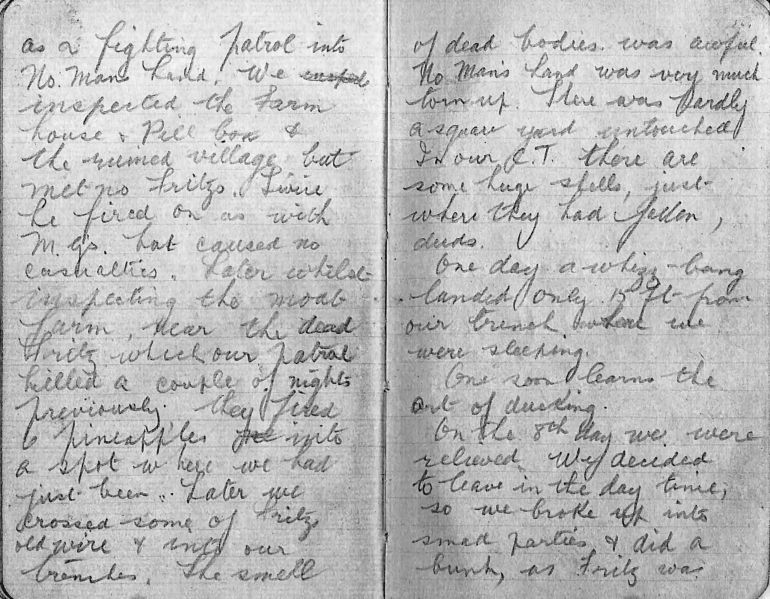 as a fighting patrol into
No. Mans Land. We
inspected the Farm
house & Pill box &
the ruined village but
met no Fritzs. Twice
he fired on us with
M.Gs. but caused no
casualties. Later whilst
inspecting the moat
farm, near the dead
Fritz which our patrol
killed a couple of nights
previously, they fired
6 pineapples into
a spot where we had
just been. Later we
crossed some of Fritzs
old wire & into our
trenches. The smell
of dead bodies was awful.
No Man's Land was very much
torn up. There was hardly
a square yard untouched
In our C.T. there are
some huge shells, just
where they had fallen,
duds.
One day a whizz-bang
landed only 15 ft from
our trench where we
were sleeping.
One soon learns the
art of ducking.
On the 8th day we were
relieved. We decided
to leave in the day time,
so we broke up into
small parties & did a
bunk, as Fritz was